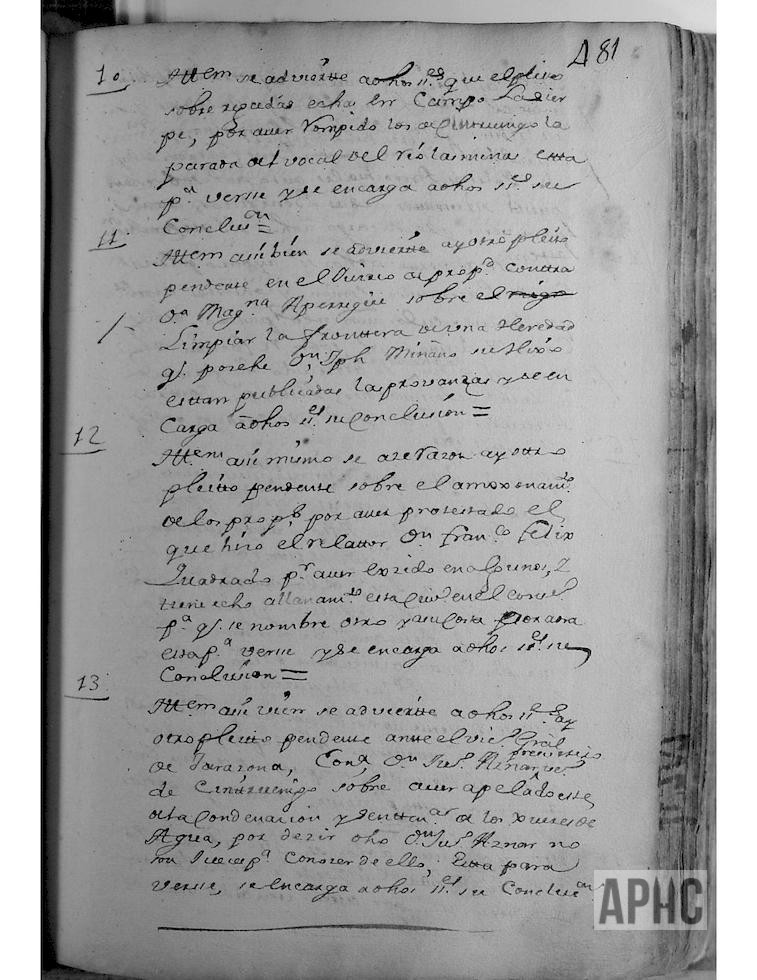 481
10 Ittem se advierte a dhos ss.es que el pleito
sobre regadas echas en Campo Lasier
pe, por aver rompido los de Cintruenigo la
parada del vocal del río las minas esta
p.a verse y se encarga a dhos ss.es su
Conclusi.on =
11 Ittem así bien se advierte ay otro pleito
pendente en el de prop.d contra
D.a Mag.na Aperregui sobre el
Limpiar la frontera de una Heredad
q.e posehe D.n Jph Miñano su Hixo
estan publicadas las provanzas y se en
Carga a dhos ss.es su conclusión =
12 Ittem así mismo se ay otro
pleito pendente sobre el amoxonam.to
de los prop.s por aver protestado el
que hizo el relator D.n Fran.co Felix
Quadrado p.r aver exzido en algunos, I
tiene echo allanam.to esta Ciud en el conse.o
p.a q.e se nombre otro y a su Costa por aora
esta p.a verse y se encarga a dhos ss.es su
Conclusion =
13 Ittem así vien se advierte a dhos ss.es ay
otro pleito pendente ante el vic.o Gral
de Tarazona, Con D.n Ju.s Aznar presvitero vez.o
de Cintruenigo sobre aver apelado este
de la Condenacion y sentten.as de los Jueces de
Agua, por dezir dho D.n Ju.s Aznar no
son Juezes p.a Conozer de ello, Esta para
verse, se encarga a dhos ss.es su Conclusi.on
APHC